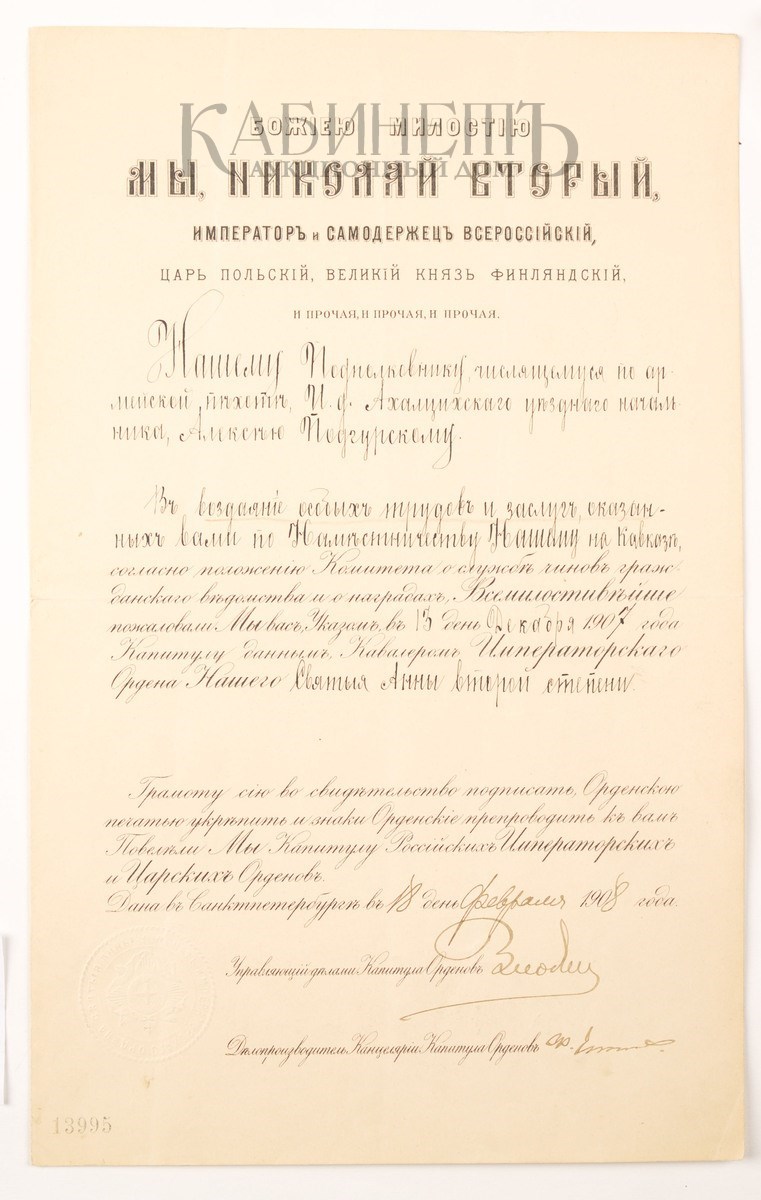 КАБИНЕТЪ
АУКЦИОННЫЙ ДОМ
БОЖІЕЮ МИЛОСТІЮ
МЫ, НИКОЛАЙ ВТОРЫЙ,
ИМПЕРАТОРЪ и САМОДЕРЖЕЦЪ ВСЕРОССІЙСКІЙ,
ЦАРЬ ПОЛЬСКІЙ, ВЕЛИКІЙ КНЯЗЬ ФИНЛЯНДСКІЙ,
И ПРОЧАЯ, И ПРОЧАЯ, И ПРОЧАЯ.
Нашему Подполковнику, числящемуся по ар-
мейской пѣхотѣ, И. д. Ахалцихскаго уѣзднаго началь-
ника, Алексѣю Подгурскому.
Въ воздаяніе особыхъ трудовъ и заслугъ, оказан-
ныхъ вами по Намѣстничеству Нашему на Кавказѣ,
согласно положенію Комитета о службѣ чиновъ граж-
данскаго вѣдомства и о наградахъ, Всемилостивѣйше
пожаловали Мы васъ, Указомъ, въ 13 день Декабря 1907 года
Капитулу даннымъ, Кавалеромъ Императорскаго
Ордена Нашего Святыя Анны второй степени.
Грамоту сію во свидѣтельство подписать, Орденскою
печатью укрѣпить и знаки Орденскіе препроводить къ вамъ
Повелѣли Мы Капитулу Россійскихъ Императорскихъ
и Царскихъ Орденовъ.
Дана въ Санктпетербургѣ въ 18 день февраля 1908 года.
Управляющій дѣлами Капитула Орденовъ
Дѣлопроизводитель Канцеляріи Капитула Орденовъ
13995